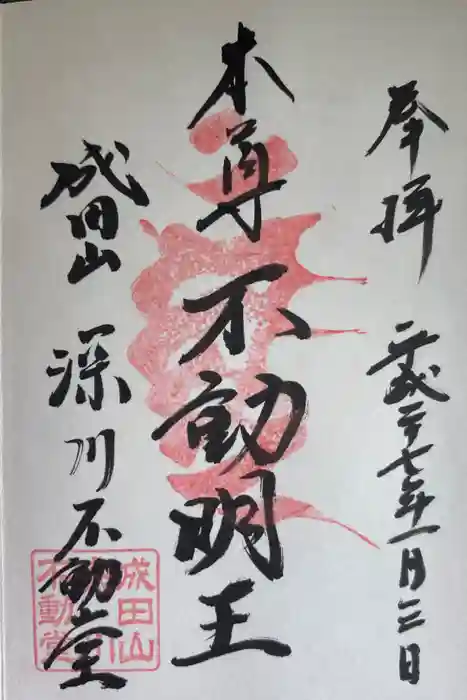 奉拝 平成二十七年一月三日
本尊 不動明王
成田山 深川不動堂
成田山
不動堂